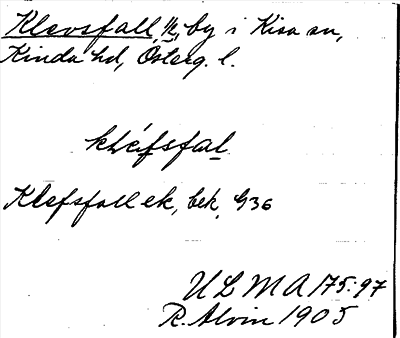 Klevsfall, ½, by i Kisa sn,
Kinda hd, Österg. l.
kLéfsfal
Klefsfall ek, bek, G36
ULMA 175:97
R. Alvin 1905